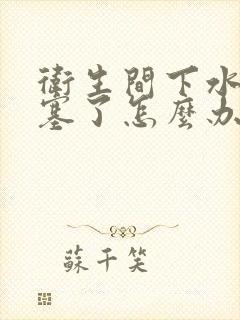 衛生間下水
塞了怎麼办
蘇千笑